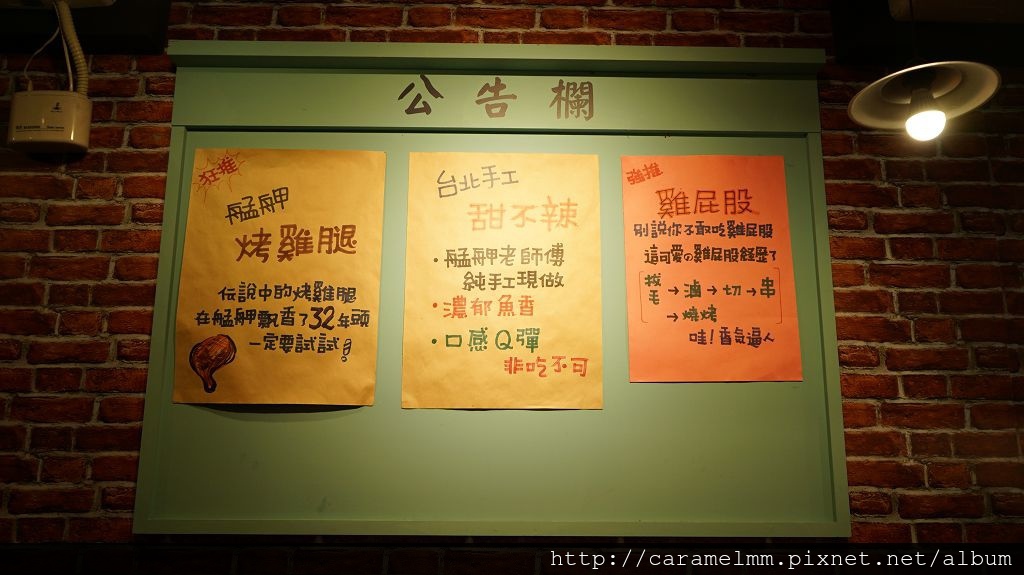 公告欄
狂推
艋舺
烤雞腿
伝說中的烤雞腿
在艋舺飄香了32年頭
一定要試試!
台北手工
甜不辣
·艋舺老師傅
純手工現做
·濃郁魚香
·口感Q彈
非吃不可
強推
雞屁股
別說你不敢吃雞屁股
這可愛の雞屁股經歷了
拔毛→滷→切→串
→燒烤
哇!香氣逼人
http://caramelmm.pixnet.net/album